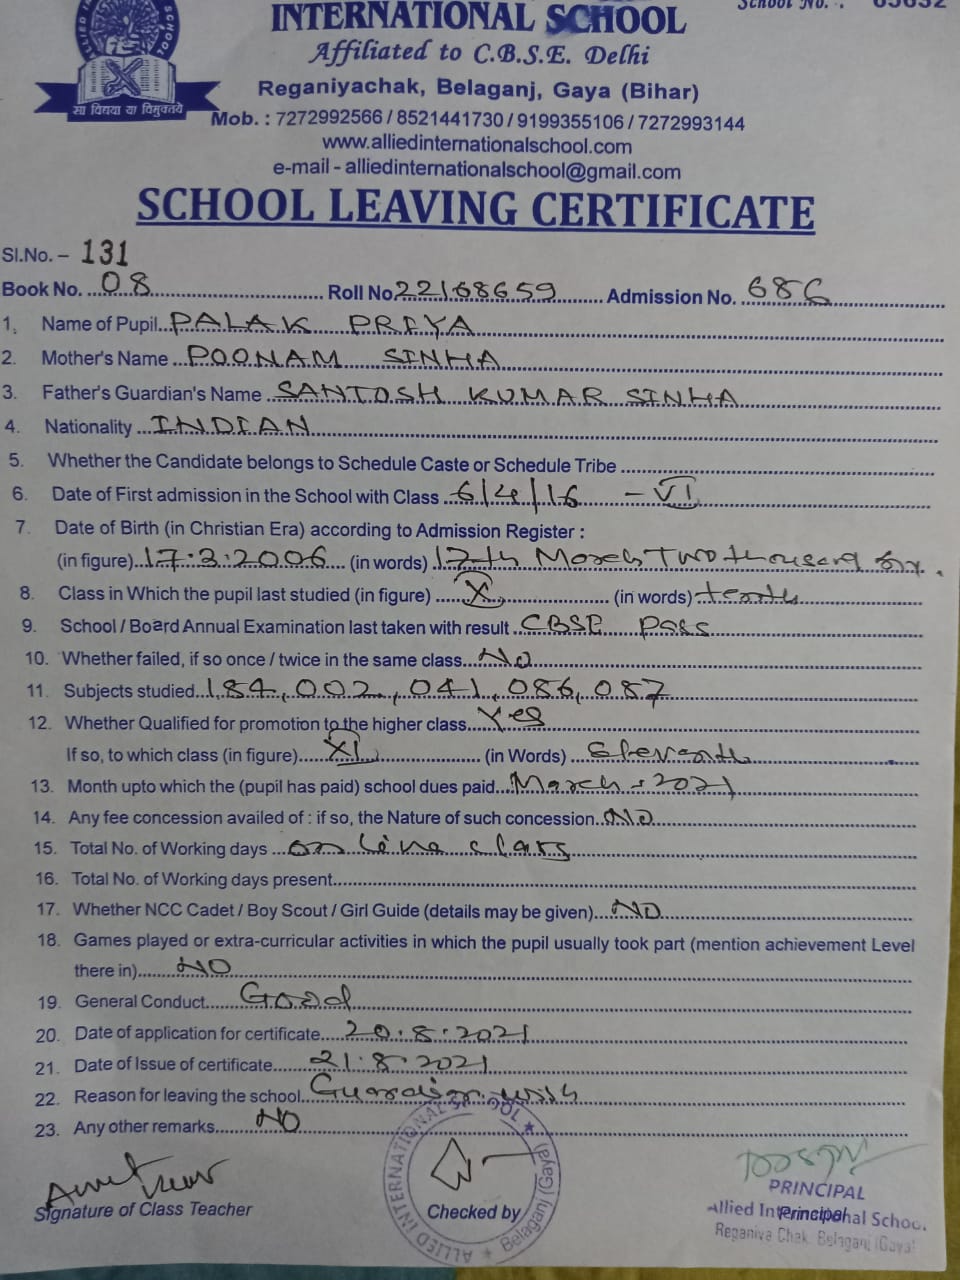 School No. : 65632
INTERNATIONAL SCHOOL
Affiliated to C.B.S.E. Delhi
Reganiyachak, Belaganj, Gaya (Bihar)
सा विद्यया या विमुक्तये
Mob. : 7272992566 / 8521441730 / 9199355106 / 7272993144
www.alliedinternationalschool.com
e-mail - alliedinternationalschool@gmail.com
SCHOOL LEAVING CERTIFICATE
Sl.No. - 131
Book No. 08 Roll No 22168659 Admission No. 686
1. Name of Pupil PALAK PRIYA
2. Mother's Name POONAM SINHA
3. Father's Guardian's Name SANTOSH KUMAR SINHA
4. Nationality INDIAN
5. Whether the Candidate belongs to Schedule Caste or Schedule Tribe
6. Date of First admission in the School with Class 6/4/16 - VI
7. Date of Birth (in Christian Era) according to Admission Register :
(in figure) 17.3.2006 (in words) 17th March Two thousand six.
8. Class in Which the pupil last studied (in figure) X (in words) tenth
9. School / Board Annual Examination last taken with result CBSE Pass
10. Whether failed, if so once / twice in the same class No
11. Subjects studied 184, 002, 041, 086, 087
12. Whether Qualified for promotion to the higher class Yes
If so, to which class (in figure) XI (in Words) Eleventh
13. Month upto which the (pupil has paid) school dues paid March - 2021
14. Any fee concession availed of : if so, the Nature of such concession NO
15. Total No. of Working days on line class
16. Total No. of Working days present
17. Whether NCC Cadet / Boy Scout / Girl Guide (details may be given) NO
18. Games played or extra-curricular activities in which the pupil usually took part (mention achievement Level
there in) NO
19. General Conduct Good
20. Date of application for certificate 20.8.2021
21. Date of Issue of certificate 21.8.2021
22. Reason for leaving the school Guardian wish
23. Any other remarks NO
ALLIED INTERNATIONAL SCHOOL ★ Belaganj (Gaya)
Signature of Class Teacher
Checked by
PRINCIPAL
Principal
Allied International School
Reganiya Chak, Belaganj (Gaya)